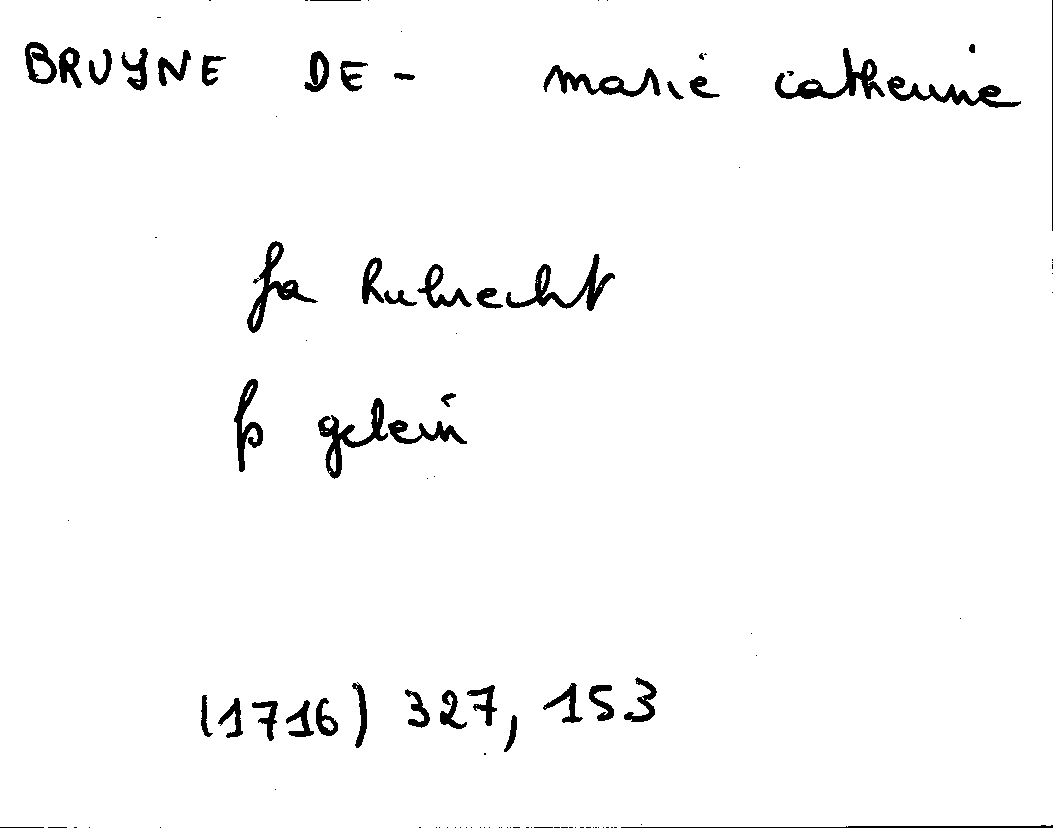 BRUYNE DE - marie catherine
fa hubrecht
fs gelein
(1716) 327, 153